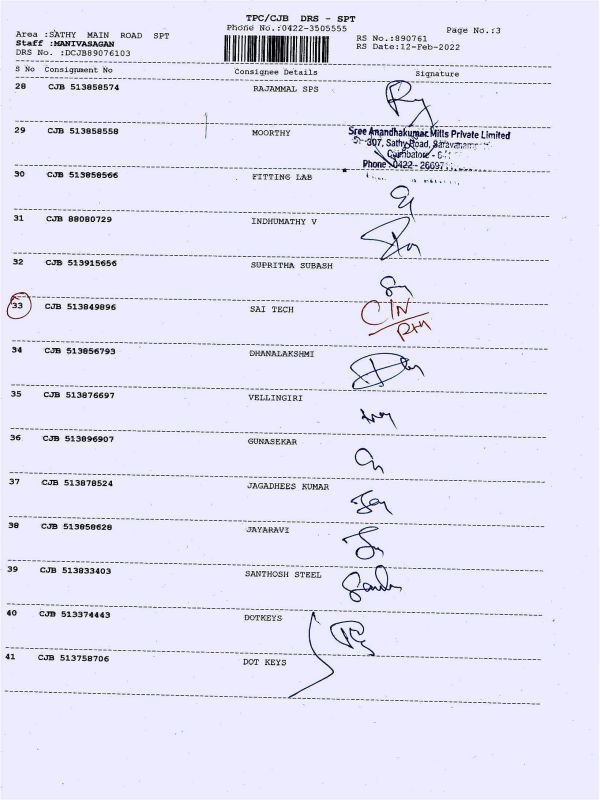 TPC/CJB DRS - SPT
Phone No.:0422-3505555
Page No.:3
Area :SATHY MAIN ROAD SPT
RS No.:890761
Staff :MANIVASAGAN
RS Date:12-Feb-2022
DRS No. :DCJB89076103
S No Consignment No Consignee Details Signature
28 CJB 513858574 RAJAMMAL SPS
29 CJB 513858558 MOORTHY
Sree Anandhakumar Mills Private Limited
307, Sathy Road, Saravanam
Coimbatore - 6
Phone : 0422 - 26697
30 CJB 513858566 FITTING LAB
31 CJB 88080729 INDHUMATHY V
32 CJB 513915656 SUPRITHA SUBASH
33 CJB 513849896 SAI TECH C/N
34 CJB 513856793 DHANALAKSHMI
35 CJB 513876697 VELLINGIRI
36 CJB 513896907 GUNASEKAR
37 CJB 513878524 JAGADHEES KUMAR
38 CJB 513858628 JAYARAVI
39 CJB 513833403 SANTHOSH STEEL
40 CJB 513374443 DOTKEYS
41 CJB 513758706 DOT KEYS